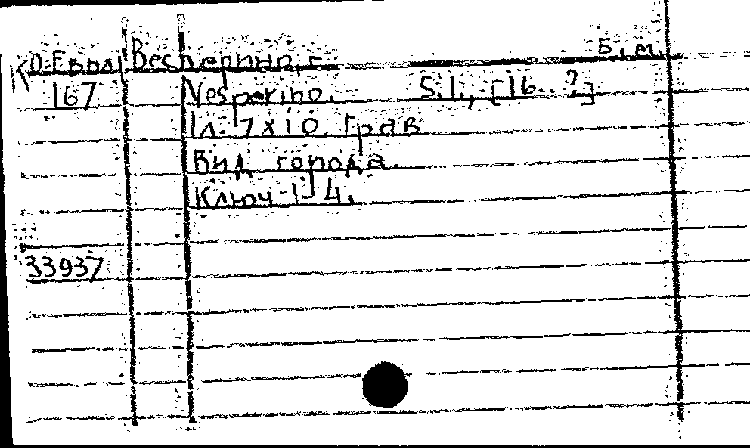 К О-Евр Весперино, г. Б.м.
167 Vesperino. S.l., [16..?]
1л. 7x10. Грав
Вид города.
Ключ 1-4.
33937